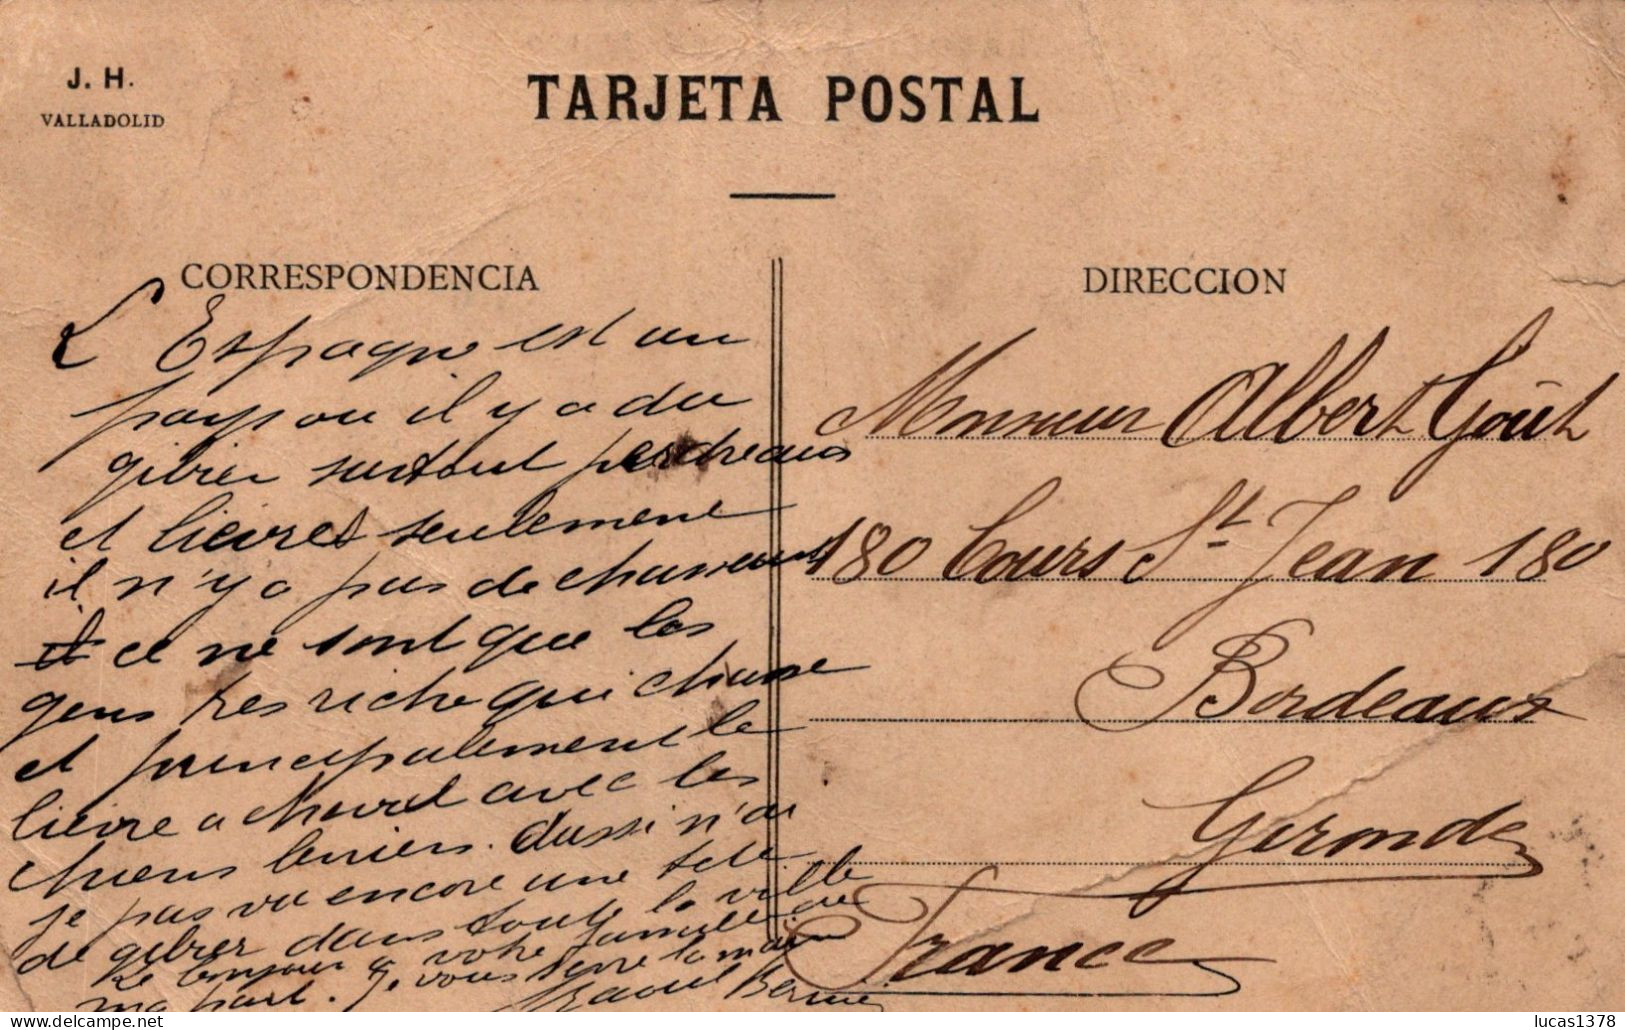 J. H.
VALLADOLID
TARJETA POSTAL
CORRESPONDENCIA
L'Espagne est un
pays ou il y a du
gibier surtout perdreaux
et lievres seulement
il n'y a pas de chasseurs
et ce ne sont que les
gens tres riche qui chasse
et principalement le
lievre a cheval avec les
chiens levriers. Aussi n'ai
je pas vu encore une tete
de gibier dans toute la ville
le bonjour a votre famille de
ma part. Je vous serre la main
Raoul
DIRECCION
Monsieur Albert Goût
180 Cours St Jean 180
Bordeaux
Gironde
France
lucas1378